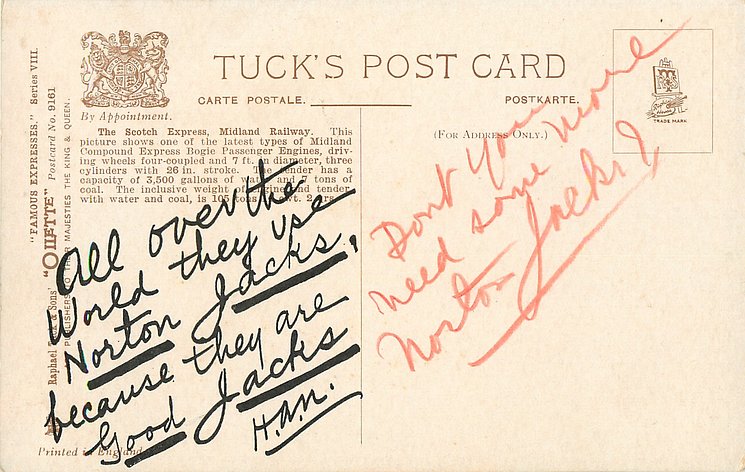 TUCK'S POST CARD
CARTE POSTALE.
POSTKARTE.
By Appointment.
(For Address Only.)
TRADE MARK
"FAMOUS EXPRESSES." Series VIII.
Raphael Tuck & Sons' "OILETTE" Postcard No. 9161
PUBLISHERS TO THEIR MAJESTIES THE KING & QUEEN.
The Scotch Express, Midland Railway. This
picture shows one of the latest types of Midland
Compound Express Bogie Passenger Engines, driv-
ing wheels four-coupled and 7 ft. in diameter, three
cylinders with 26 in. stroke. The tender has a
capacity of 3,500 gallons of water and 7 tons of
coal. The inclusive weight of engine and tender
with water and coal, is 105 tons cwt. 2 qrs.
All over the
World they use
Norton Jacks,
because they are
Good Jacks
H.A.N.
Dont you
need some more
Norton Jacks?
Printed in England